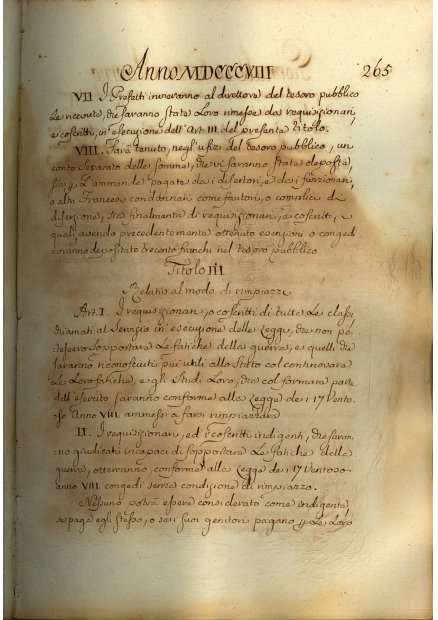 Anno MDCCCVIII 265
VII I Prefetti invieranno al direttore del tesoro pubblico
Le ricevute, che saranno state Loro rimesse da requisizionari,
e coscritti, in esecuzione dell' Art. III del presente Titolo.
VIII. Sarà tenuto, negl' ufizi del tesoro pubblico, un
conto separato delle somme, che vi saranno state deposte,
sia p. ammende pagate da i desertori, e da i funzionari,
o altri Francesi condannati come fautori, o complici di
diserzione, sia finalmente di requisizionari, e coscritti, i
quali avendo precedentemente ottenuto esenzioni o congedi
avranno depositato trecento franchi nel tesoro pubblico
Titolo III
Relativo al modo di rimpiazzi
Art. I. I requisizionari, o coscritti di tutte Le classi
chiamati al Servizio in esecuzione delle Legge, che non po-
tessero sopportare Le fatiche della guerra, e quelli che
saranno riconosciuti più utili allo Stato col continovare
Le Loro fatiche, e gli Studi Loro, che col formare parte
dell' esercito saranno conforme alla Legge de i 17 Vento-
so Anno VIII ammessi a farsi rimpiazzare
II. I requisizionari, ed i coscritti indigenti, che saran-
no giudicati incapaci di sopportare Le fatiche della
guerra, otterranno, conforme alla Legge de i 17 Ventoso
anno VIII congedi senza condizione di rimpiazzo.
Nessuno potrà essere considerato come indigente,
se paga egli stesso, o se i suoi genitori pagano p. Le Loro